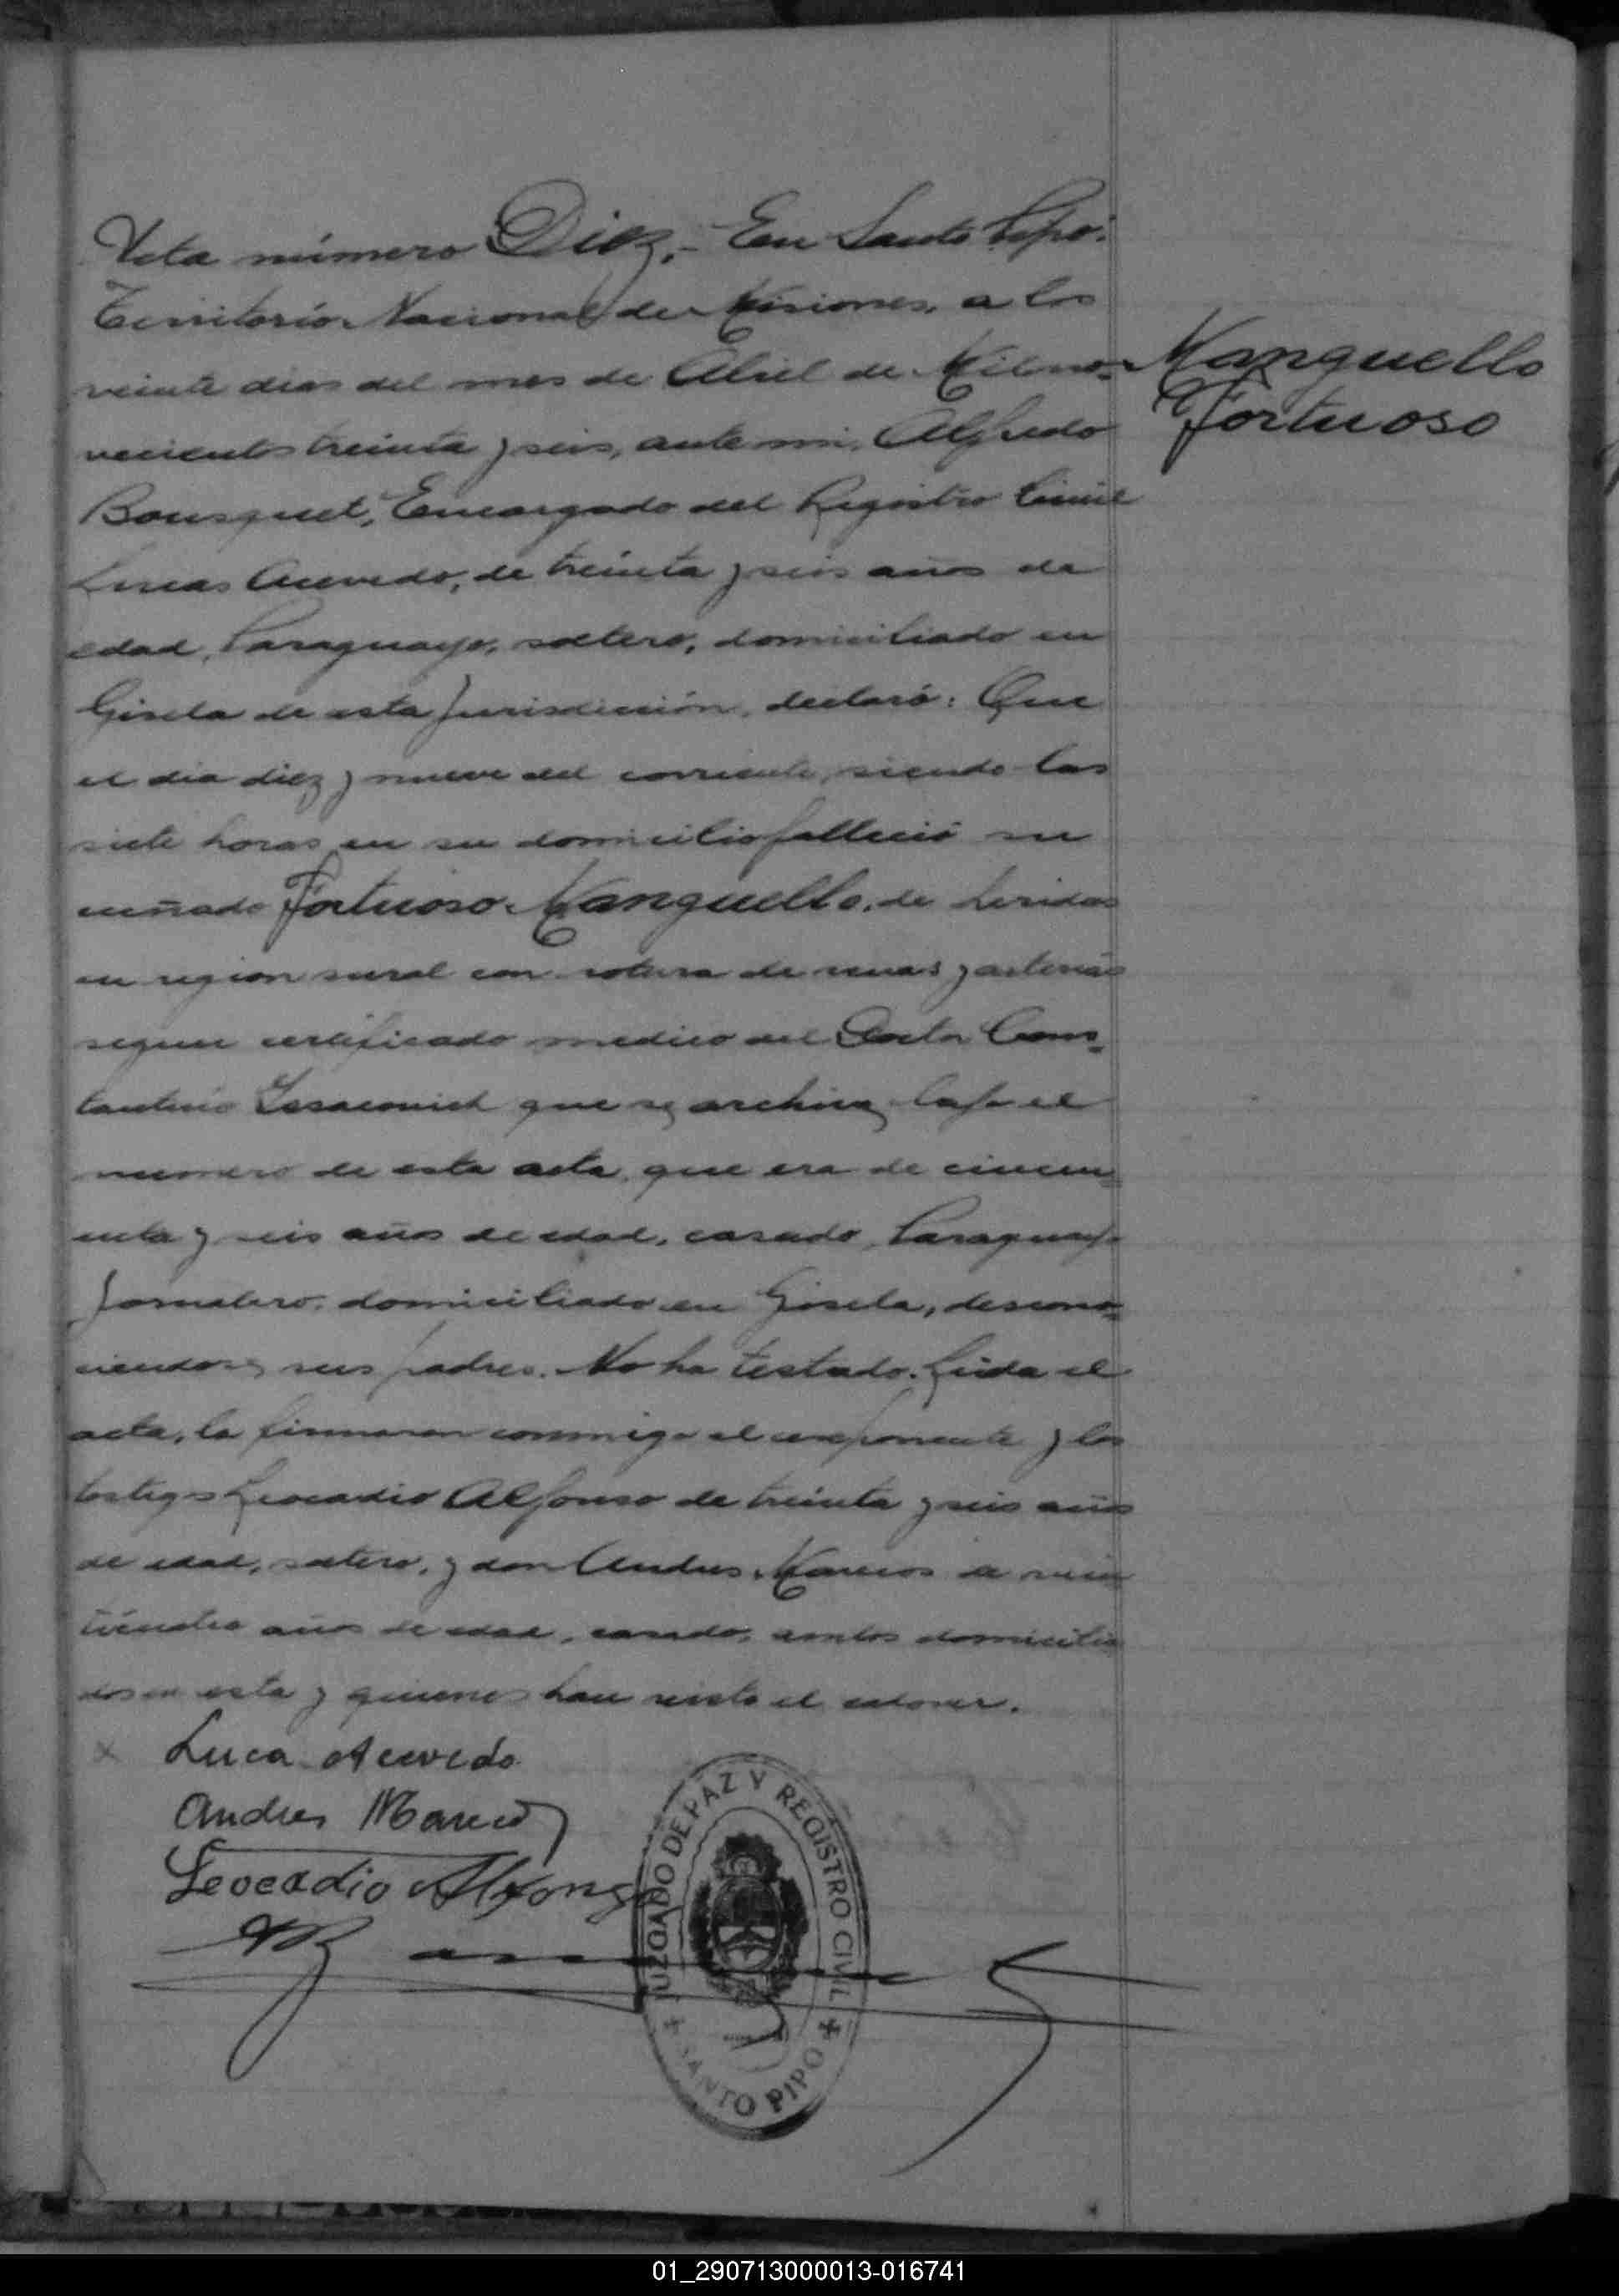 Acta número Diez.- En Santo Pipó.
Territorio Nacional de Misiones, a los
veinte dias del mes de Abril de Mil no-
vecientos treinta y seis, ante mi, Alfredo
Bousquet, Encargado del Registro Civil
Lucas Acevedo, de treinta y seis años de
edad, Paraguayo, soltero, domiciliado en
Gisela de esta Jurisdicción, declaró: Que
el dia diez y nueve del corriente, siendo las
siete horas en su domicilio falleció su
cuñado Fortuoso Manguello, de heridas
en region con rotura de venas y arterias
segun certificado medico del Doctor Cons-
tantino que se archiva bajo el
numero de esta acta, que era de cincu-
enta y seis años de edad, casado, Paraguayo
Jornalero, domiciliado en Gisela, descono-
ciendose sus padres. No ha testado. Leida el
acta, la firmaron conmigo el exponente y los
testigos Leocadio Alfonso de treinta y seis años
de edad, soltero, y don Andres Marecos de vein
ticuatro años de edad, casado, ambos domicilia
dos en esta y quienes han visto el cadaver.
Manguello
Fortuoso
x Luca Acevedo
Andres Mareco
Leocadio Alfonso
JUZGADO DE PAZ Y REGISTRO CIVIL
SANTO PIPO
01_290713000013-016741